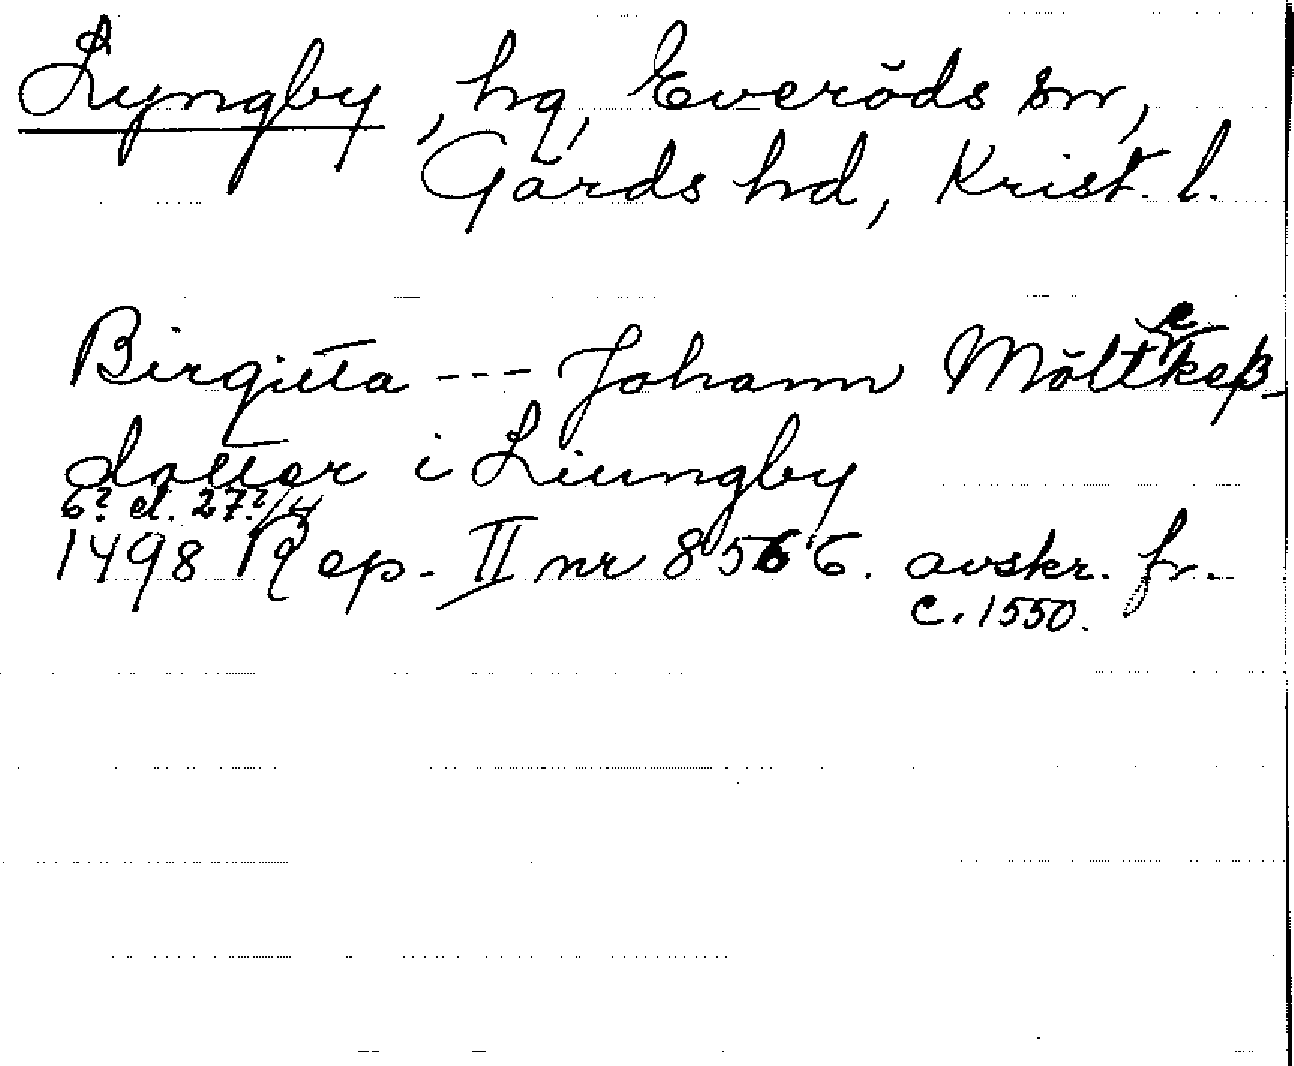 Lyngby, hg, Everöds sn,
Gärds hd, Krist. l.
Birgitta --- Johann Möltkeß
dotter i Liungby
6? el. 27?/4
1498 Rep. II nr 8566. avskr. fr.
c. 1550.